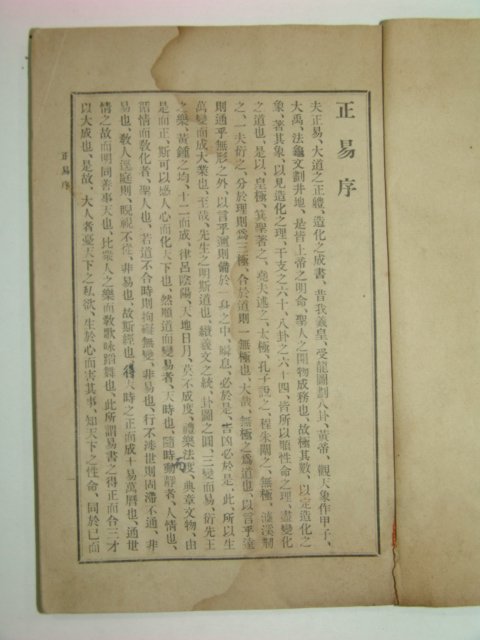 正易序
夫正易、大道之正體、造化之成書、昔我羲皇、受龍圖劃八卦、黃帝、觀天象作甲子、
大禹、法龜文劃井地、是皆上帝之明命、聖人之開物成務也、故極其數、以定造化之
象、著其象、以見造化之理、干支之六十、八卦之六十四、皆所以順性命之理、盡變化
之道也、是以、皇極、箕聖著之、堯夫述之、太極、孔子說之、程朱闡之、無極、濂溪
之、一夫衍之、分於理則爲三極、合於道則一無極也、大哉、無極之爲道也、以言乎遠
則通乎無形之外、以言乎邇則備於一身之中、瞬息、必於是、吉凶必於是、此、所以生
萬變而成大業也、至哉、先生之明斯道也、繼羲文之統、卦圖之圓、三變而易、衍先王
之樂、黃鍾之均、十二而成、律呂陰陽、天地日月、莫不成度、禮樂法度、典章文物、由
是而正、斯可以感人心而化天下也、然順道而變易者、天時也、隨時動靜者、人情也、
節情而敎化者、聖人也、若道不合時則拘礙無變、非易也、行不捿世則固滯不通、非
易也、敎人違庭則、睍視不從、非易也、故斯經也、得天時之正而成十易萬曆也、通世
情之故而明同善事天也、比衆人之樂而敎歌咏蹈舞也、此所謂易書之得正而合三才
以大成也、是故、大人者憂天下之私欲、生於心而害其事、知天下之性命、同於己而
正易序